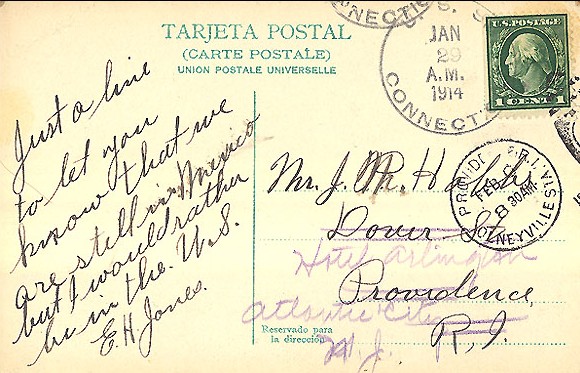 TARJETA POSTAL
(CARTE POSTALE)
UNION POSTALE UNIVERSELLE
Just a line
to let you
know that we
are still in Mexico
but I would rather
be in the U.S.
E.H. Jones.
U.S.
CONNECTIC
JAN
29
A.M.
1914
CONNECT
U.S. POSTAGE
1 CENT 1
PROVID R.I.
FEB
8
30AM
OLNEYVILLE STA.
Mr. J. M.
Dover St.
Hotel Arlington
Providence,
Atlantic City
R.I.
N.J.
Reservado para
la dirección